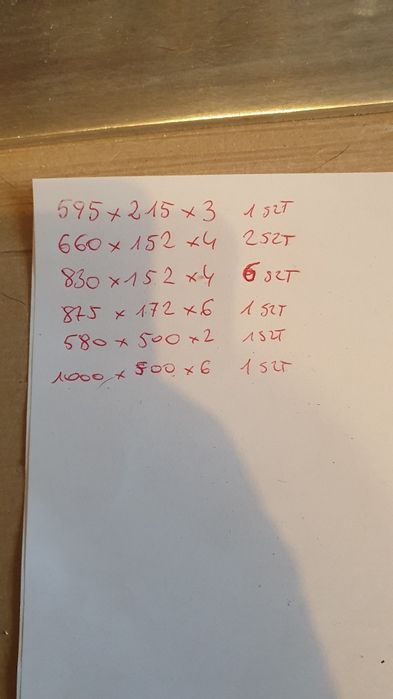 595 x 215 x 3 1 SZT
660 x 152 x 4 2 SZT
830 x 152 x 4 6 SZT
875 x 172 x 6 1 SZT
580 x 500 x 2 1 SZT
1000 x 500 x 6 1 SZT